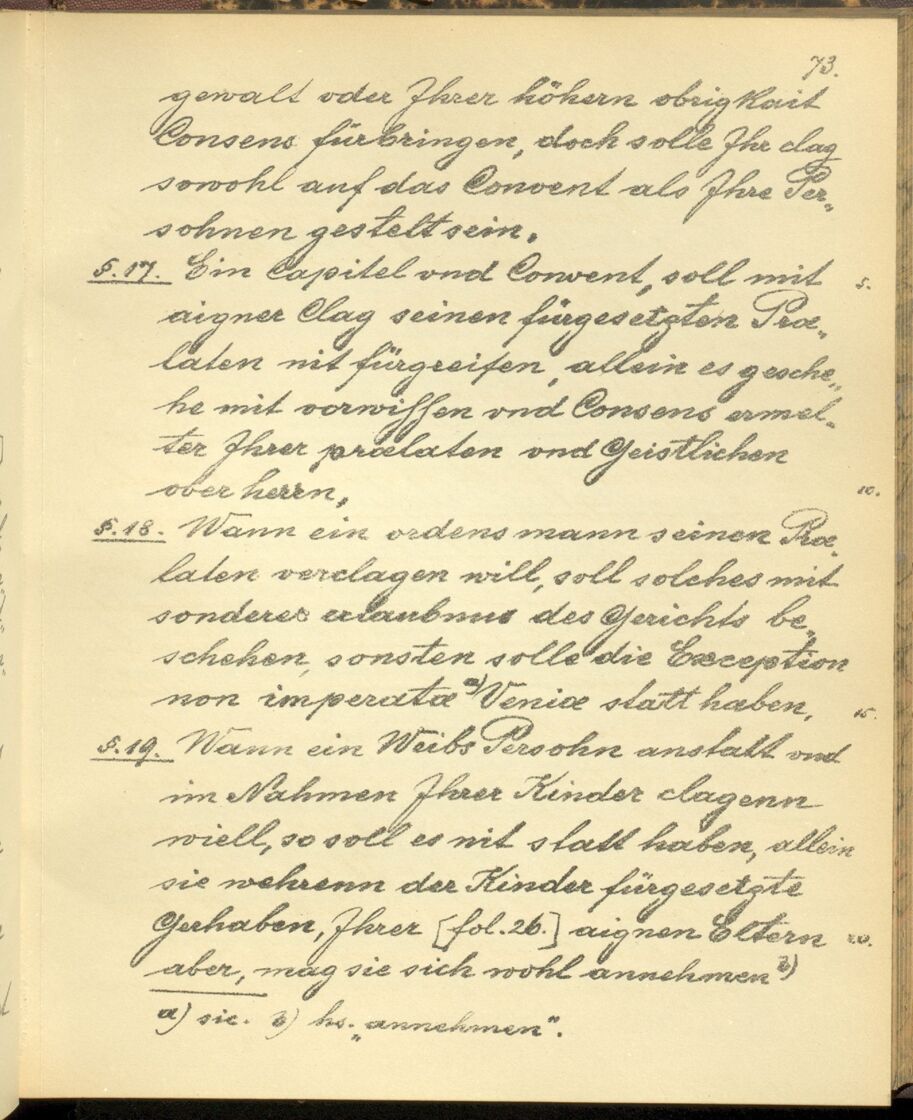 73.
gewalt oder Ihrer höhern obrigkait
Consens fürbringen, doch solle Ihr clag
sowohl auf das Convent als Ihre Per„
sohnen gestelt sein.
§.17. Ein Capitel vnd Convent, soll mit 5.
aigner Clag seinen fürgesetzten Præ„
laten nit fürgreifen, allein es gesche„
he mit vorwissen vnd Consens ermel„
ter Ihrer prælaten vnd Geistlichen
ober herrn, 10.
§.18. Wann ein ordens mann seinen Præ„
laten verclagen will, soll solches mit
sonderer erlaubnus des Gerichts be„
schehen, sonsten solle die Exception
non imperatæ a) Veniæ statt haben, 15.
§.19. Wann ein Weibs Persohn anstatt vnd
im Nahmen Ihrer Kinder clagenn
wiell, so soll es nit statt haben, allein
sie wehrenn der Kinder fürgesetzte
Gerhaben, Ihrer [fol. 26.] aignen Eltern 20.
aber, mag sie sich wohl annehmen b)
a) sic. b) hs. „annehmen".